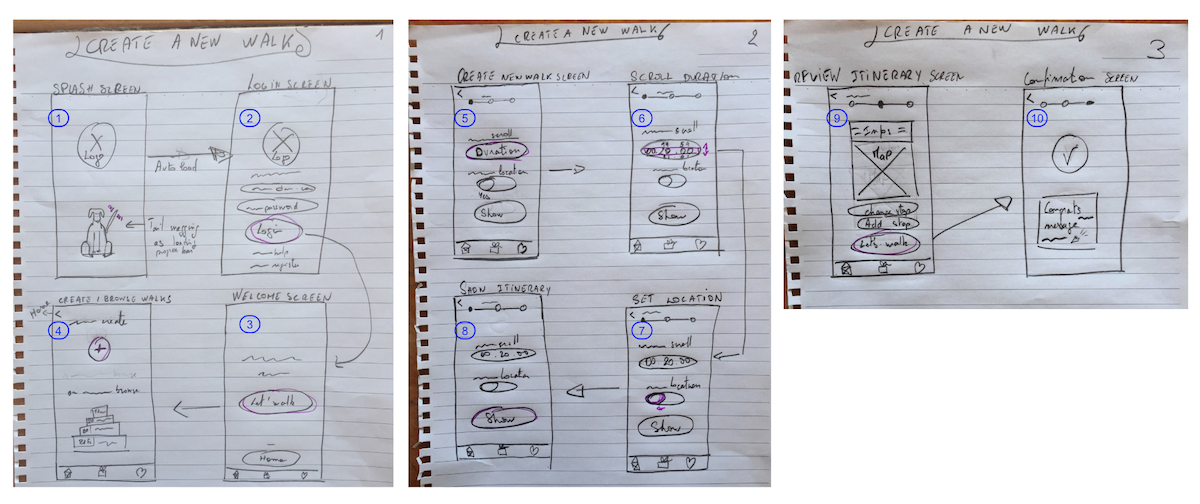 CREATE A NEW WALK
1
SPLASH SCREEN
1
Logo
Auto load
Tail wagging
as loading
progress bar
LOGIN SCREEN
2
Logo
password
Login
help
register
WELCOME SCREEN
3
Let's walk
Home
CREATE / BROWSE WALKS
Home
4
create
+
browse
CREATE A NEW WALK
2
CREATE NEW WALK SCREEN
5
scroll
Duration
location
Yes
Show
SCROLL DURATION
6
scroll
00.20.00
location
Show
SET LOCATION
7
scroll
00.20.00
location
Show
SHOW ITINERARY
8
scroll
00.20.00
location
Show
CREATE A NEW WALK
3
REVIEW ITINERARY SCREEN
9
Map
change stop
Add stop
Let's walk
Confirmation SCREEN
10
Congrats
message